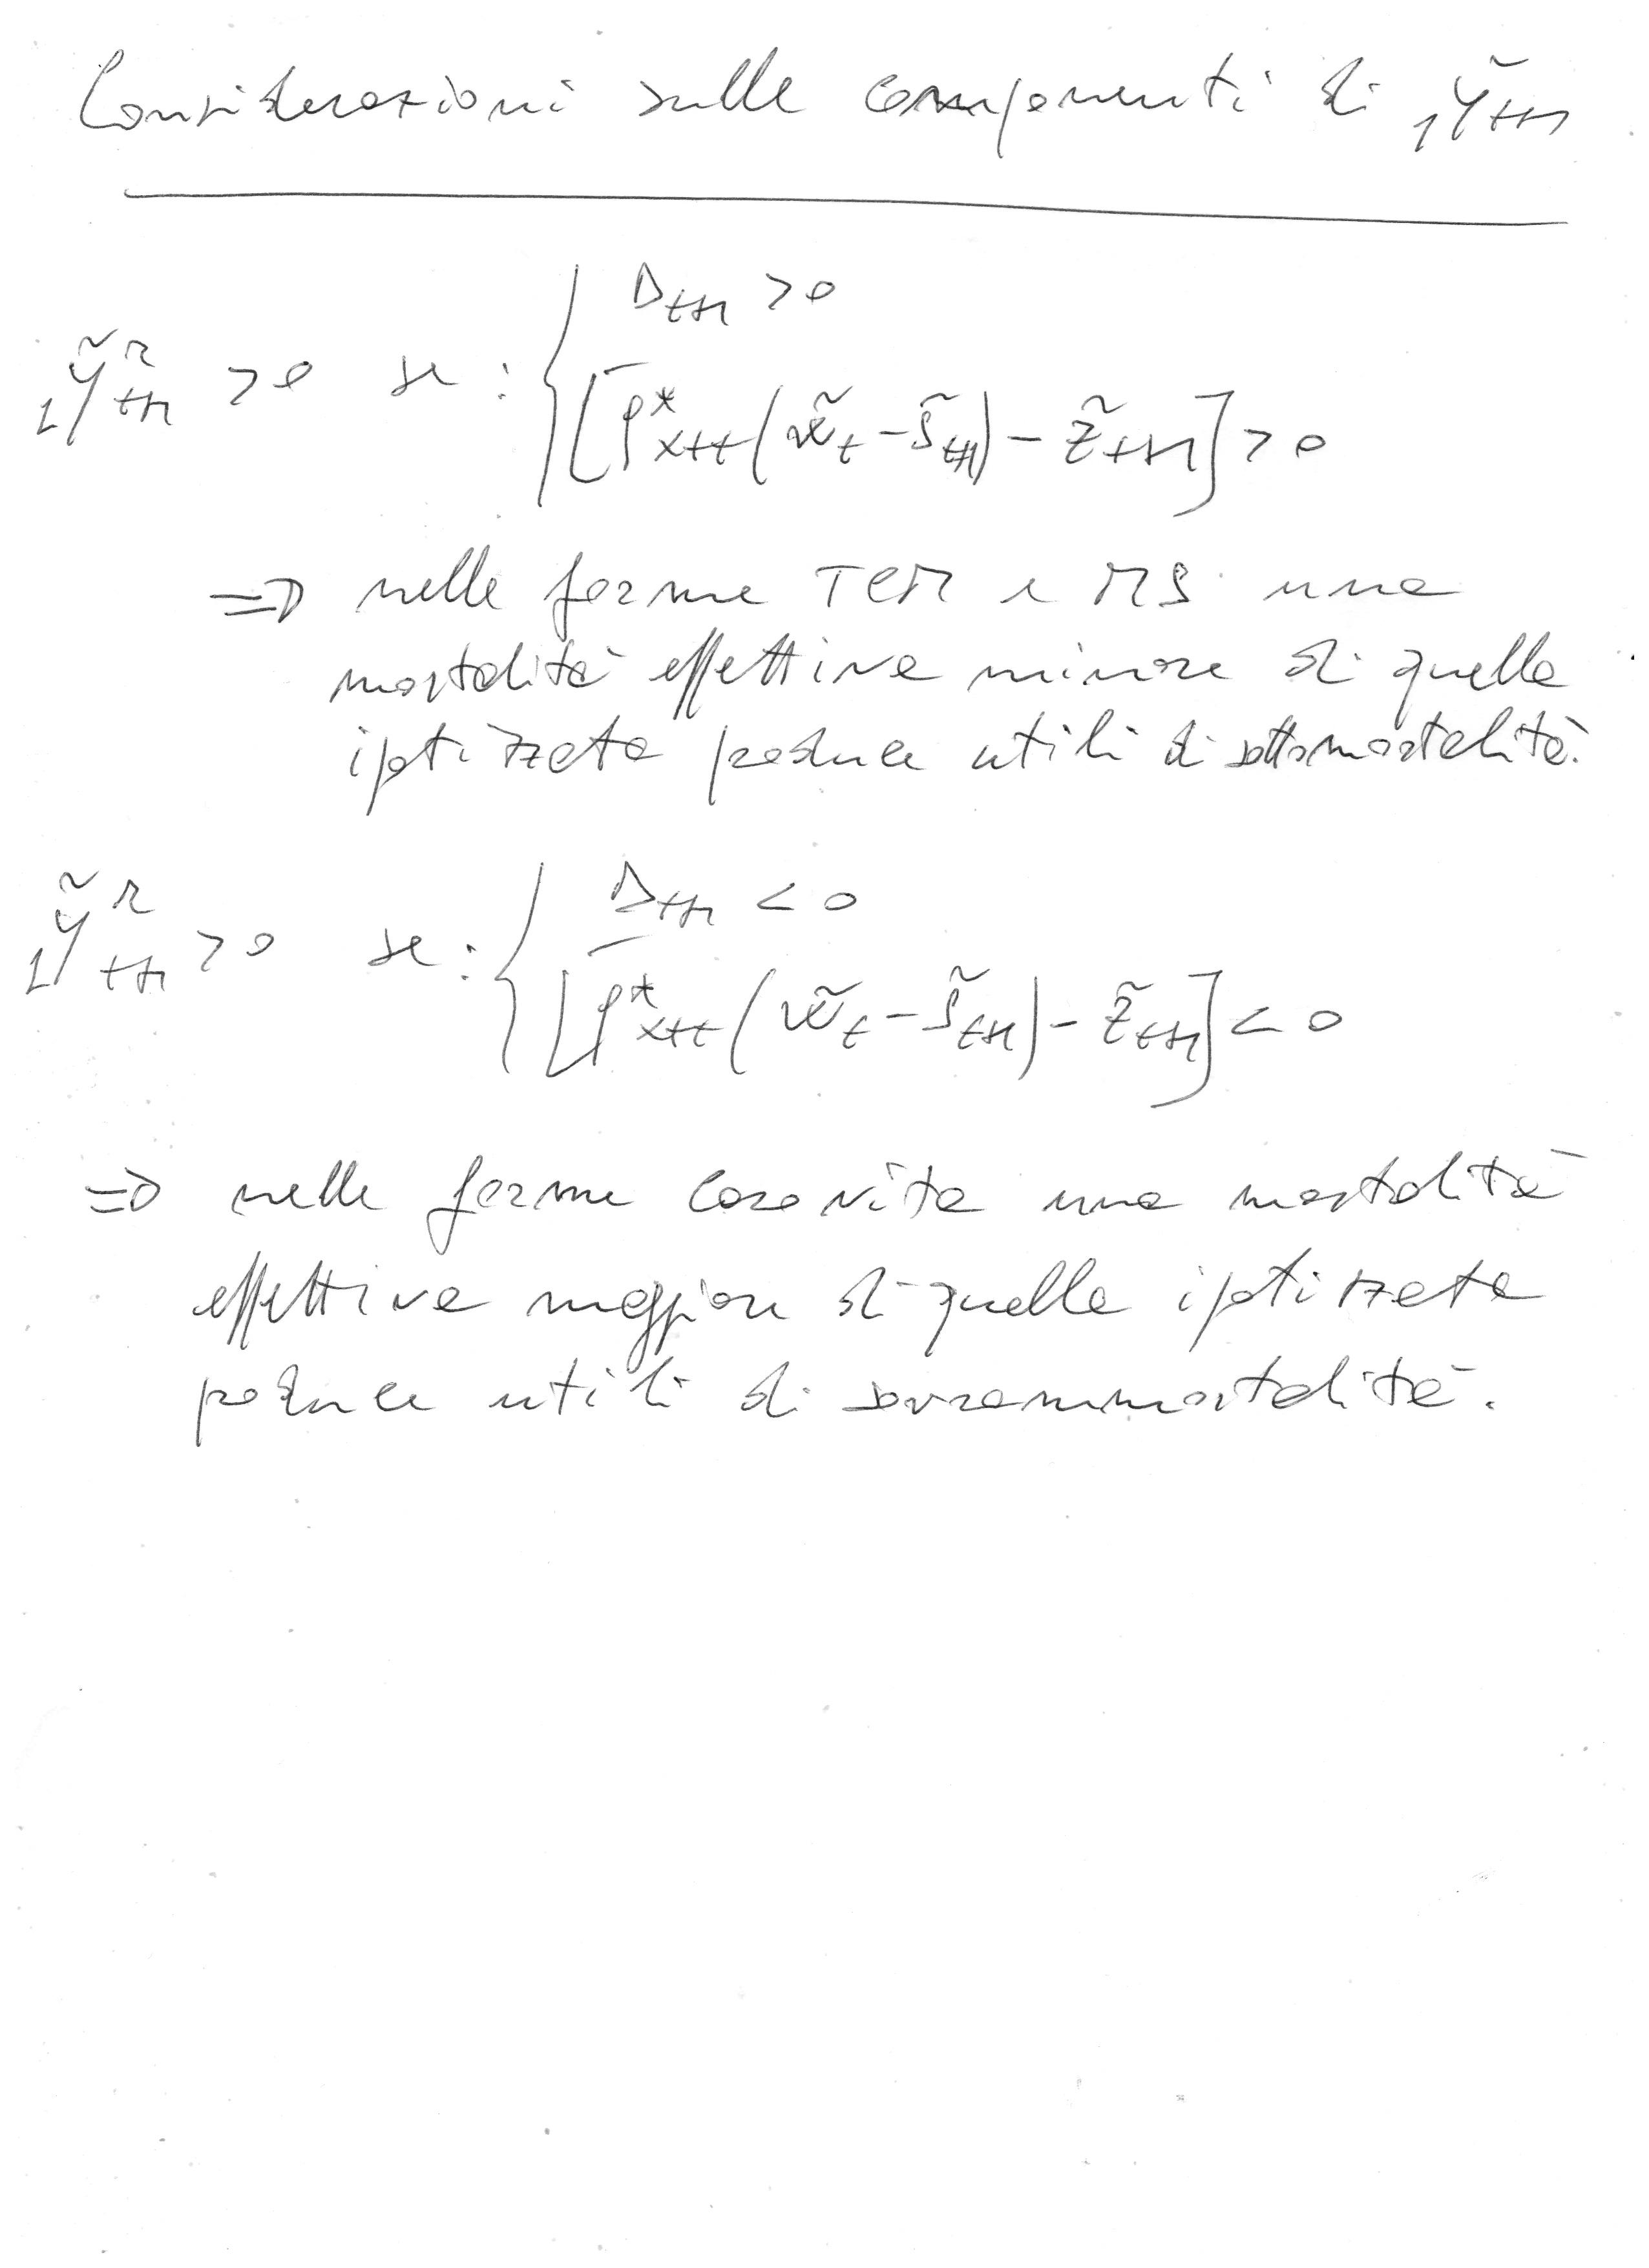 Considerazioni sulle componenti di ₁Ỹ_{t+1}
₁Ỹ^{r}_{t+1} > 0 se : { Δ_{t+1} > 0
[ρ*_{x+t} (w̃_t - s̃_{t+1}) - z̃_{t+1}] > 0
⇒ nelle forme TCM e MS una
mortalità effettiva minore di quella
ipotizzata produce utili di sottomortalità.
₁Ỹ^{r}_{t+1} > 0 se : { Δ_{t+1} < 0
[ρ*_{x+t} (w̃_t - s̃_{t+1}) - z̃_{t+1}] < 0
⇒ nelle forme caso vita una mortalità
effettiva maggiore di quella ipotizzata
produce utili di sovrammortalità.